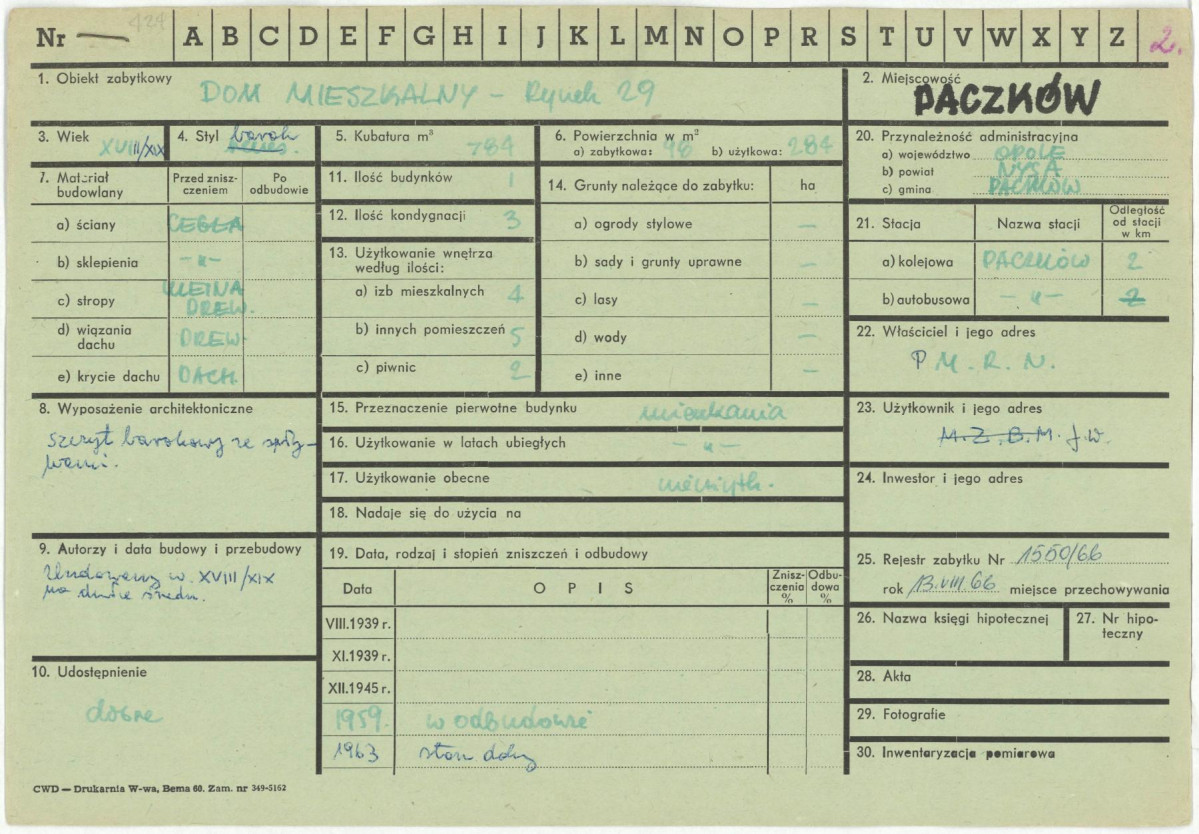 Nr — 424 A B C D E F G H I J K L M N O P R S T U V W X Y Z 2.
1. Obiekt zabytkowy DOM MIESZKALNY – Rynek 29
2. Miejscowość PACZKÓW
3. Wiek XVIII/XIX
4. Styl barok
5. Kubatura m³ 784
6. Powierzchnia w m²
a) zabytkowa: 98 b) użytkowa: 284
20. Przynależność administracyjna
a) województwo OPOLE
b) powiat NYSA
c) gmina PACZKÓW
7. Materiał budowlany
Przed zniszczeniem
Po odbudowie
a) ściany CEGŁA
b) sklepienia -„-
c) stropy KLEINA DREW.
d) wiązania dachu DREW.
e) krycie dachu DACH.
11. Ilość budynków 1
12. Ilość kondygnacji 3
13. Użytkowanie wnętrza według ilości:
a) izb mieszkalnych 4
b) innych pomieszczeń 5
c) piwnic 2
14. Grunty należące do zabytku: ha
a) ogrody stylowe —
b) sady i grunty uprawne —
c) lasy —
d) wody —
e) inne
21. Stacja Nazwa stacji Odległość od stacji w km
a) kolejowa PACZKÓW 2
b) autobusowa -„- 2
22. Właściciel i jego adres
P M. R. N.
8. Wyposażenie architektoniczne
szczyt barokowy ze spły-
wami.
15. Przeznaczenie pierwotne budynku mieszkania
16. Użytkowanie w latach ubiegłych -„-
17. Użytkowanie obecne
18. Nadaje się do użycia na
23. Użytkownik i jego adres
M.Z.B.M. j.w.
24. Inwestor i jego adres
9. Autorzy i data budowy i przebudowy
Zbudowany w. XVIII/XIX
na średn.
19. Data, rodzaj i stopień zniszczeń i odbudowy
Data OPIS Zniszczenia % Odbudowa %
VIII.1939 r.
XI.1939 r.
XII.1945 r.
1959. w odbudowie
1963 stan dobry
25. Rejestr zabytku Nr 1550/66
rok 13.VIII 66 miejsce przechowywania
26. Nazwa księgi hipotecznej
27. Nr hipoteczny
10. Udostępnienie
dobre
28. Akta
29. Fotografie
30. Inwentaryzacja pomiarowa
CWD — Drukarnia W-wa, Bema 60. Zam. nr 349-5162